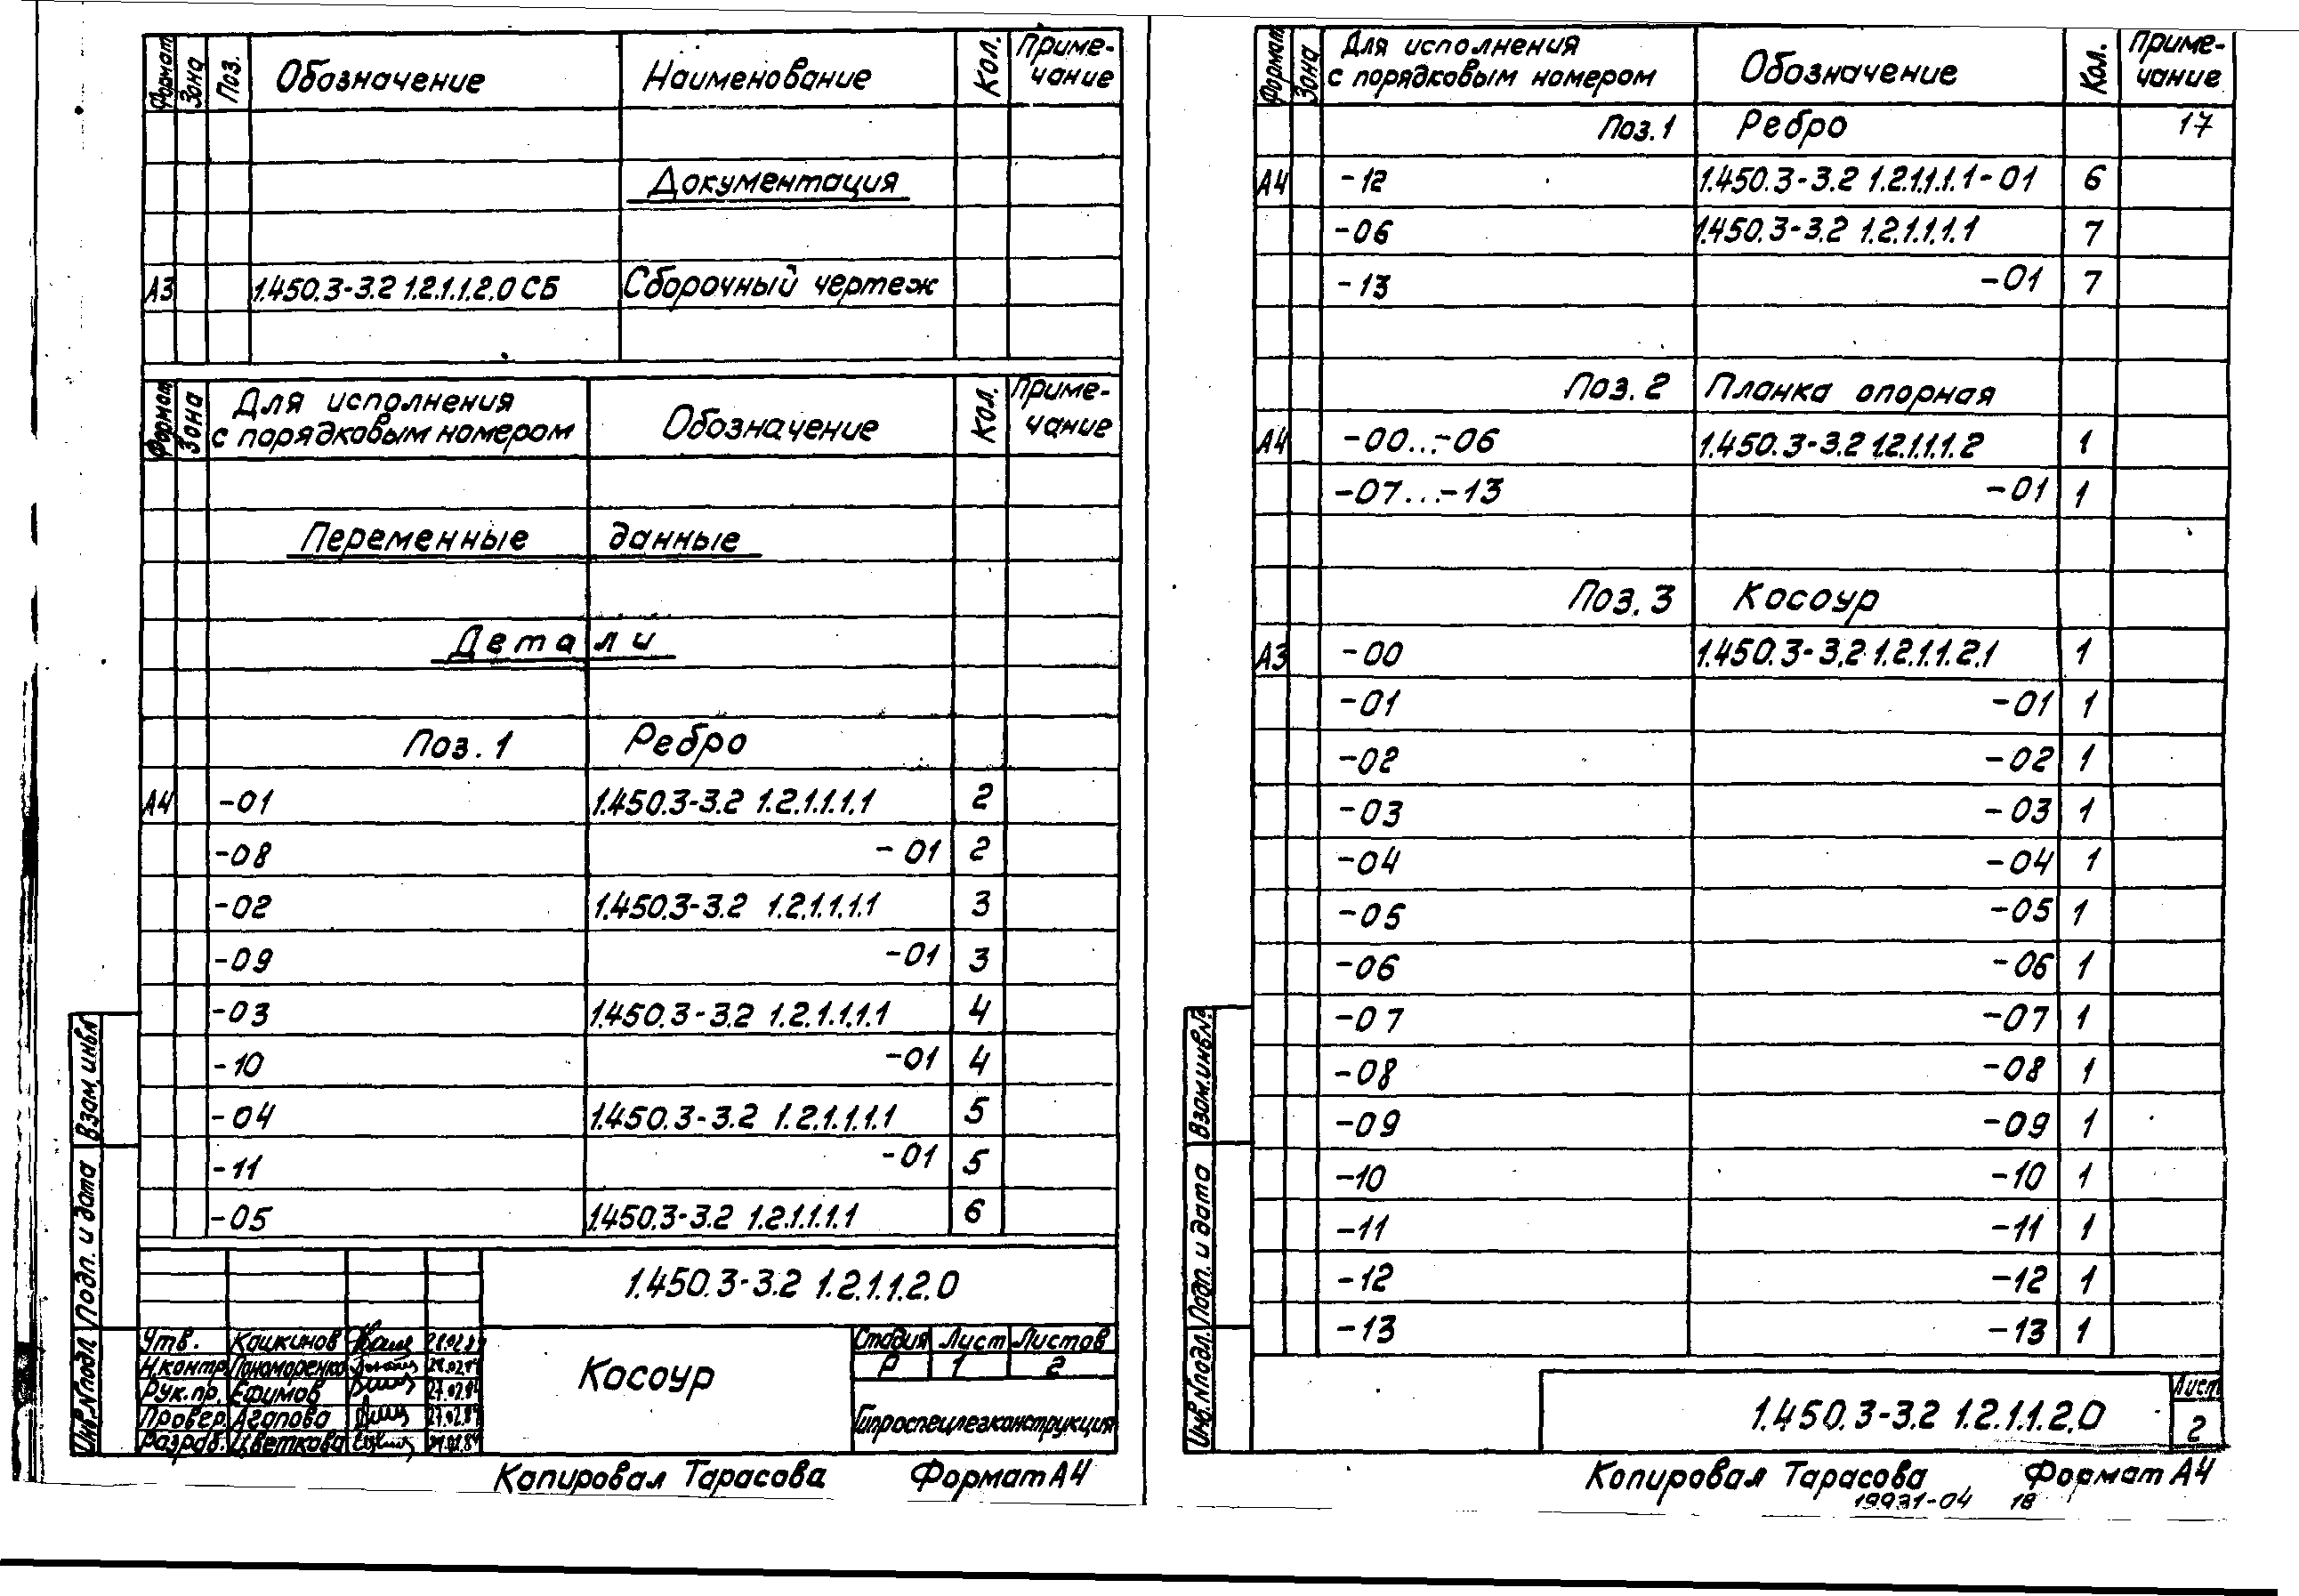 Формат Зона Поз. Обозначение Наименование Кол. Приме-
чание
Документация
А3 1.450.3-3.2 1.2.1.1.2.0 СБ Сборочный чертеж
Формат Зона Для исполнения
с порядковым номером Обозначение Кол. Приме-
чание
Переменные данные
Детали
Поз. 1 Ребро
А4 -01 1.450.3-3.2 1.2.1.1.1.1 2
-08 -01 2
-02 1.450.3-3.2 1.2.1.1.1.1 3
-09 -01 3
-03 1.450.3-3.2 1.2.1.1.1.1 4
-10 -01 4
-04 1.450.3-3.2 1.2.1.1.1.1 5
-11 -01 5
-05 1.450.3-3.2 1.2.1.1.1.1 6
Взам инв№
Подп. и дата
Инв.№подл
1.450.3-3.2 1.2.1.1.2.0
Утв. Кашкинов 21.02.84
Н.контр Пономаренко 21.02.84
Рук.пр. Ефимов 27.02.84
Провер. Агапова 27.02.84
Разраб. Цветкова 21.02.84
Косоур
Стадия Лист Листов
Р 1 2
Гипроспецлегконструкция
Копировал Тарасова Формат А4
Формат Зона Для исполнения
с порядковым номером Обозначение Кол. Приме-
чание
Поз. 1 Ребро 17
А4 -12 1.450.3-3.2 1.2.1.1.1.1-01 6
-06 1.450.3-3.2 1.2.1.1.1.1 7
-13 -01 7
Поз. 2 Планка опорная
А4 -00...-06 1.450.3-3.2 1.2.1.1.1.2 1
-07...-13 -01 1
Поз. 3 Косоур
А3 -00 1.450.3-3.2 1.2.1.1.2.1 1
-01 -01 1
-02 -02 1
-03 -03 1
-04 -04 1
-05 -05 1
-06 -06 1
-07 -07 1
-08 -08 1
-09 -09 1
-10 -10 1
-11 -11 1
-12 -12 1
-13 -13 1
Взам.инв.№
Подп. и дата
Инв.№подл.
1.450.3-3.2 1.2.1.1.2.0
Лист
2
Копировал Тарасова Формат А4
19931-04 18